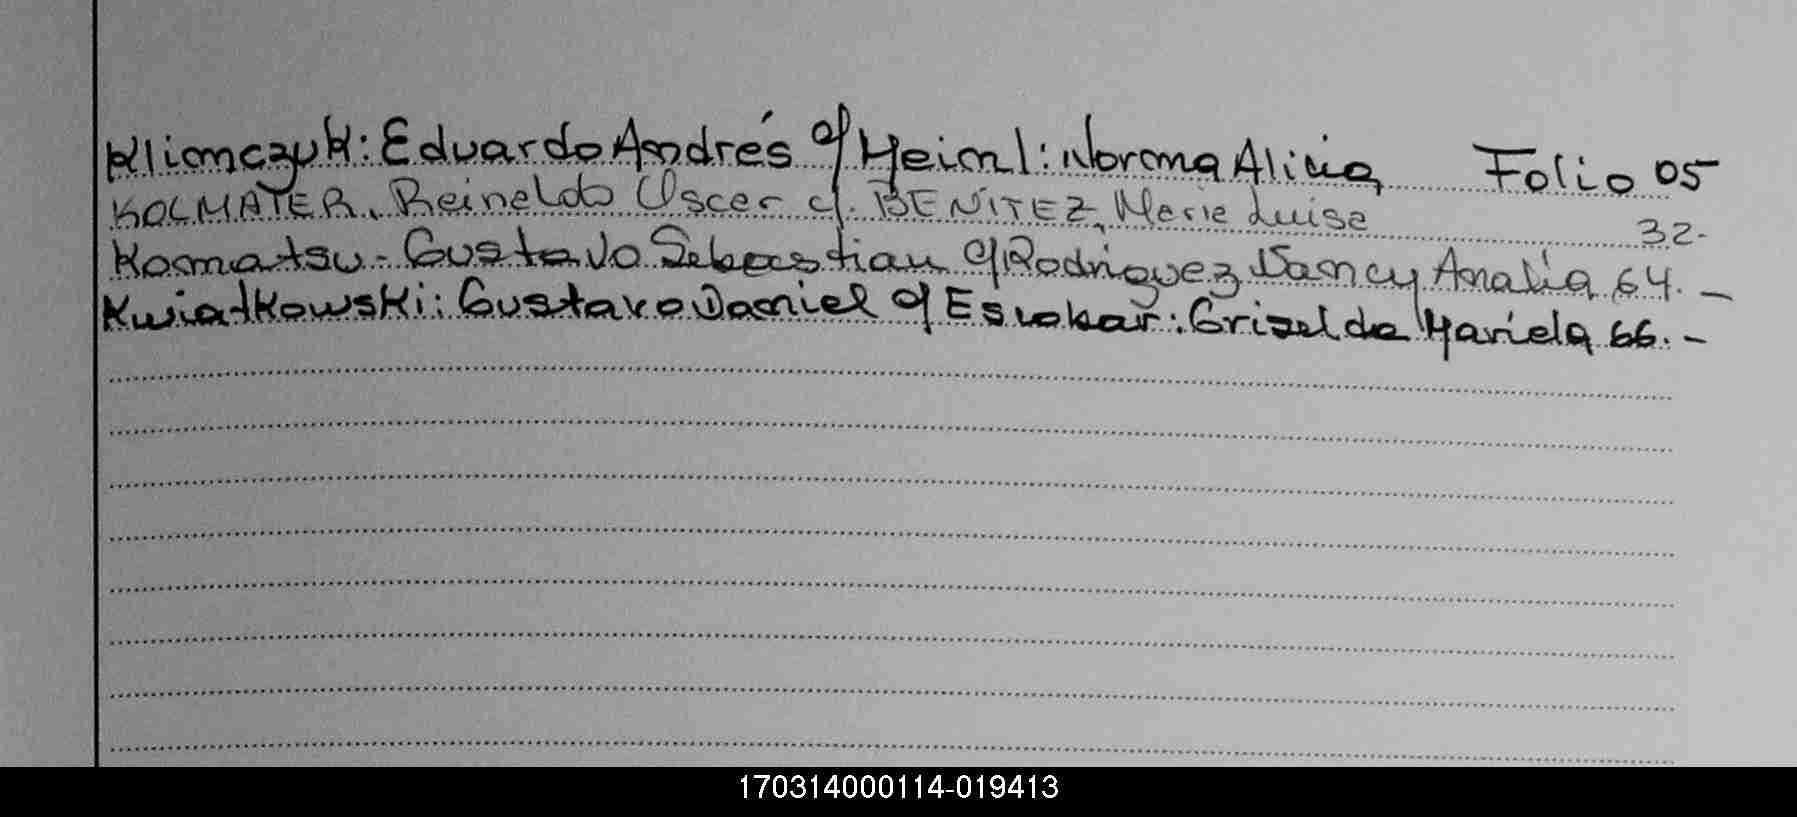 Klimczuk: Eduardo Andrés c/ Heinl: Norma Alicia Folio 05
KOLMAYER, Reinaldo Oscar c/. BENITEZ, Maria Luisa 32.
Komatsu - Gustavo Sebastian c/ Rodriguez Nancy Analia 64. -
Kwiatkowski: Gustavo Daniel c/ Escobar: Griselda Mariela 66. -
170314000114-019413